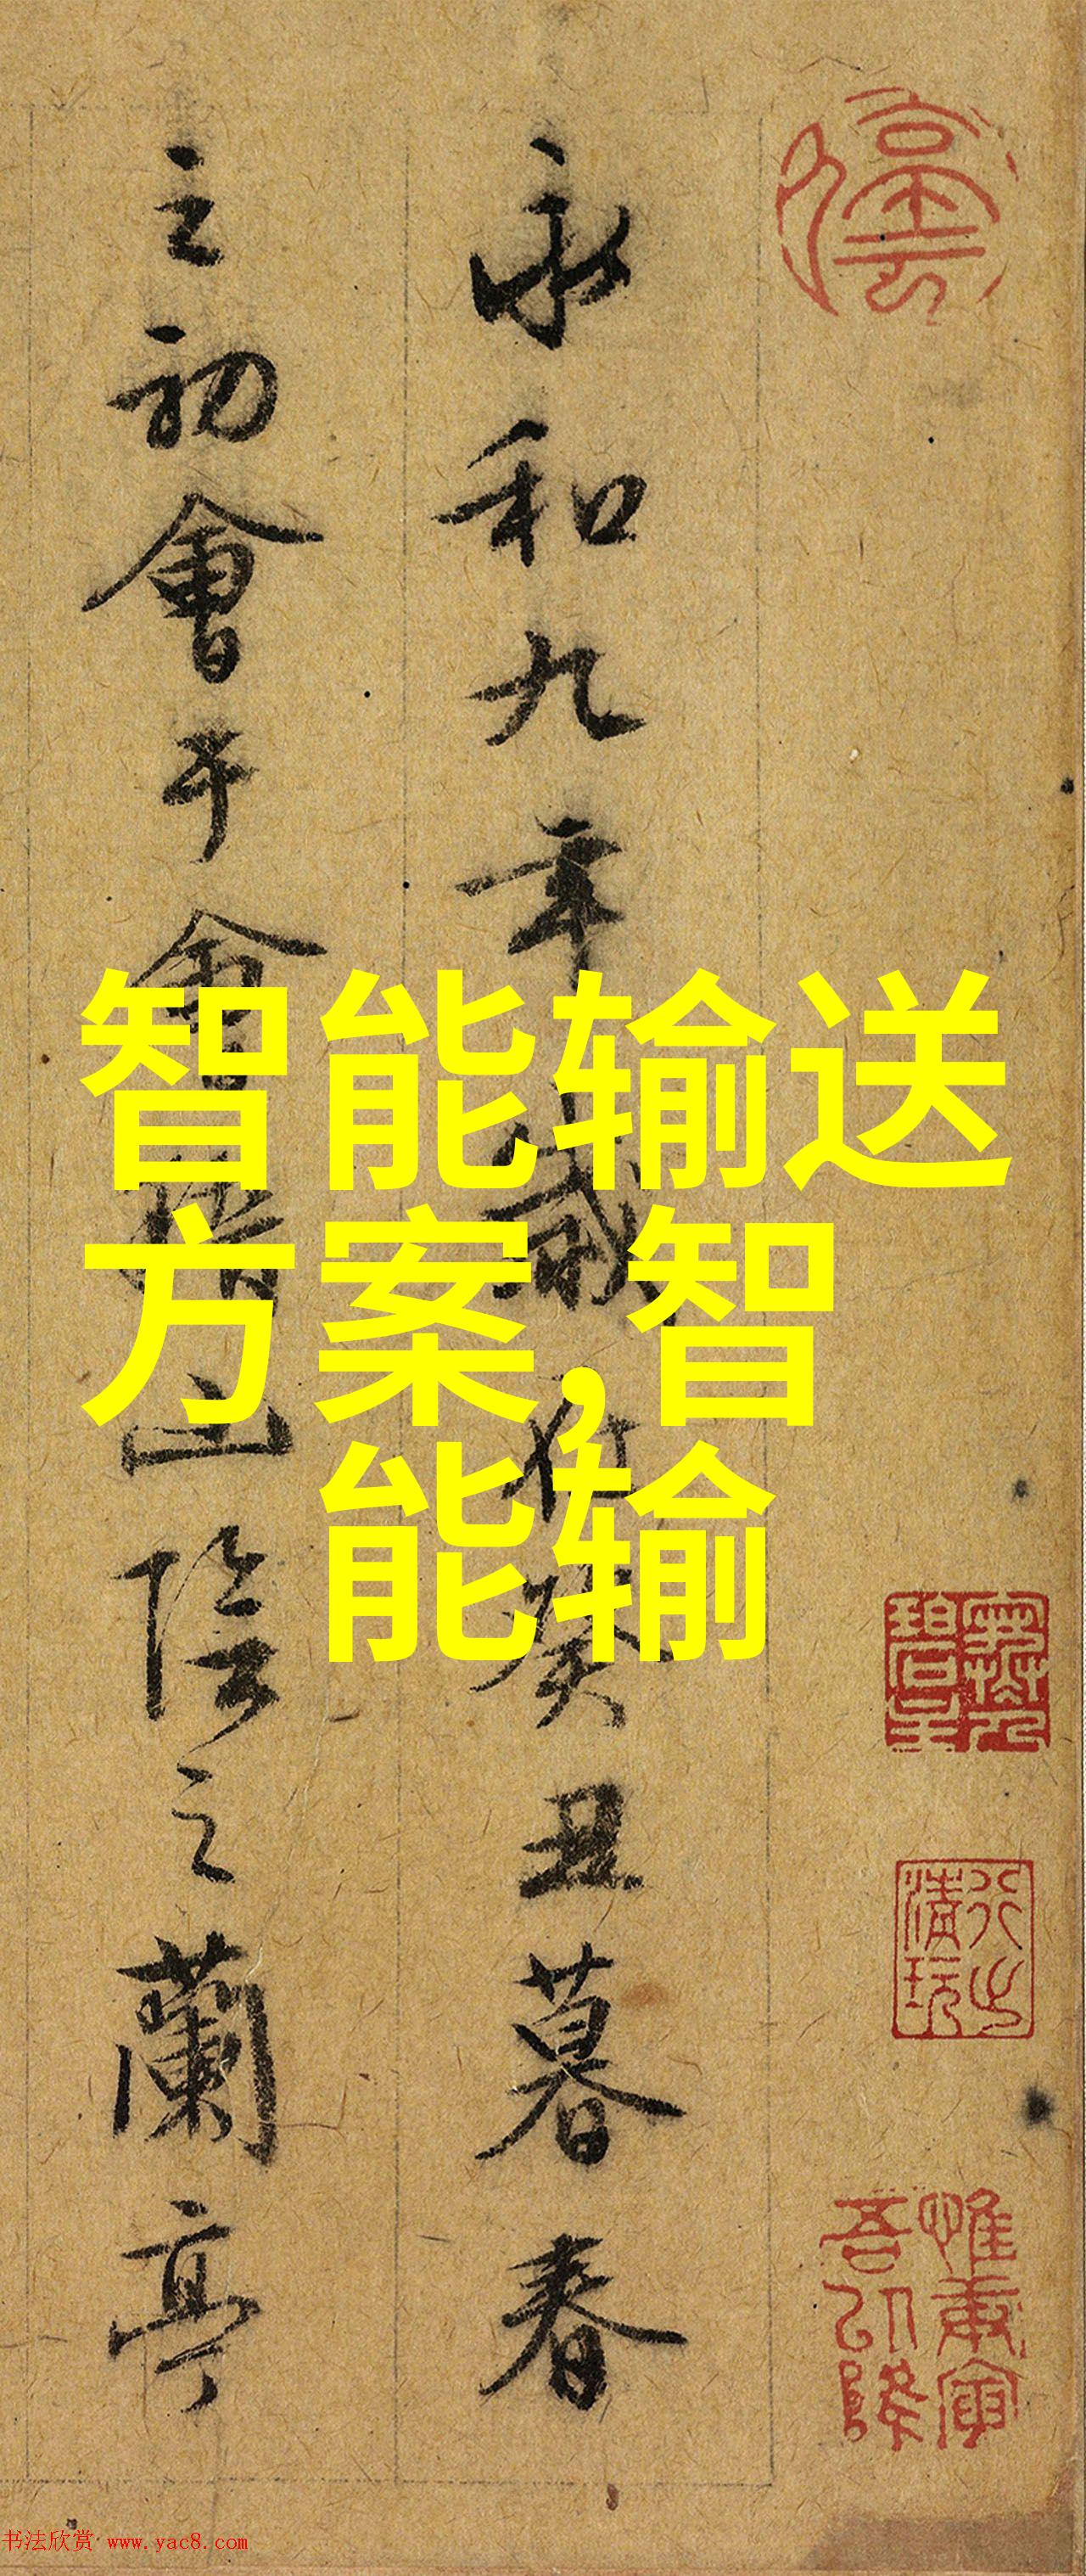 永和九年歲在癸丑暮春
之初會于會稽山陰之蘭亭
智能输送
方案,智
能输
惟庚寅吾以降
书法欣赏 www.yac8.com